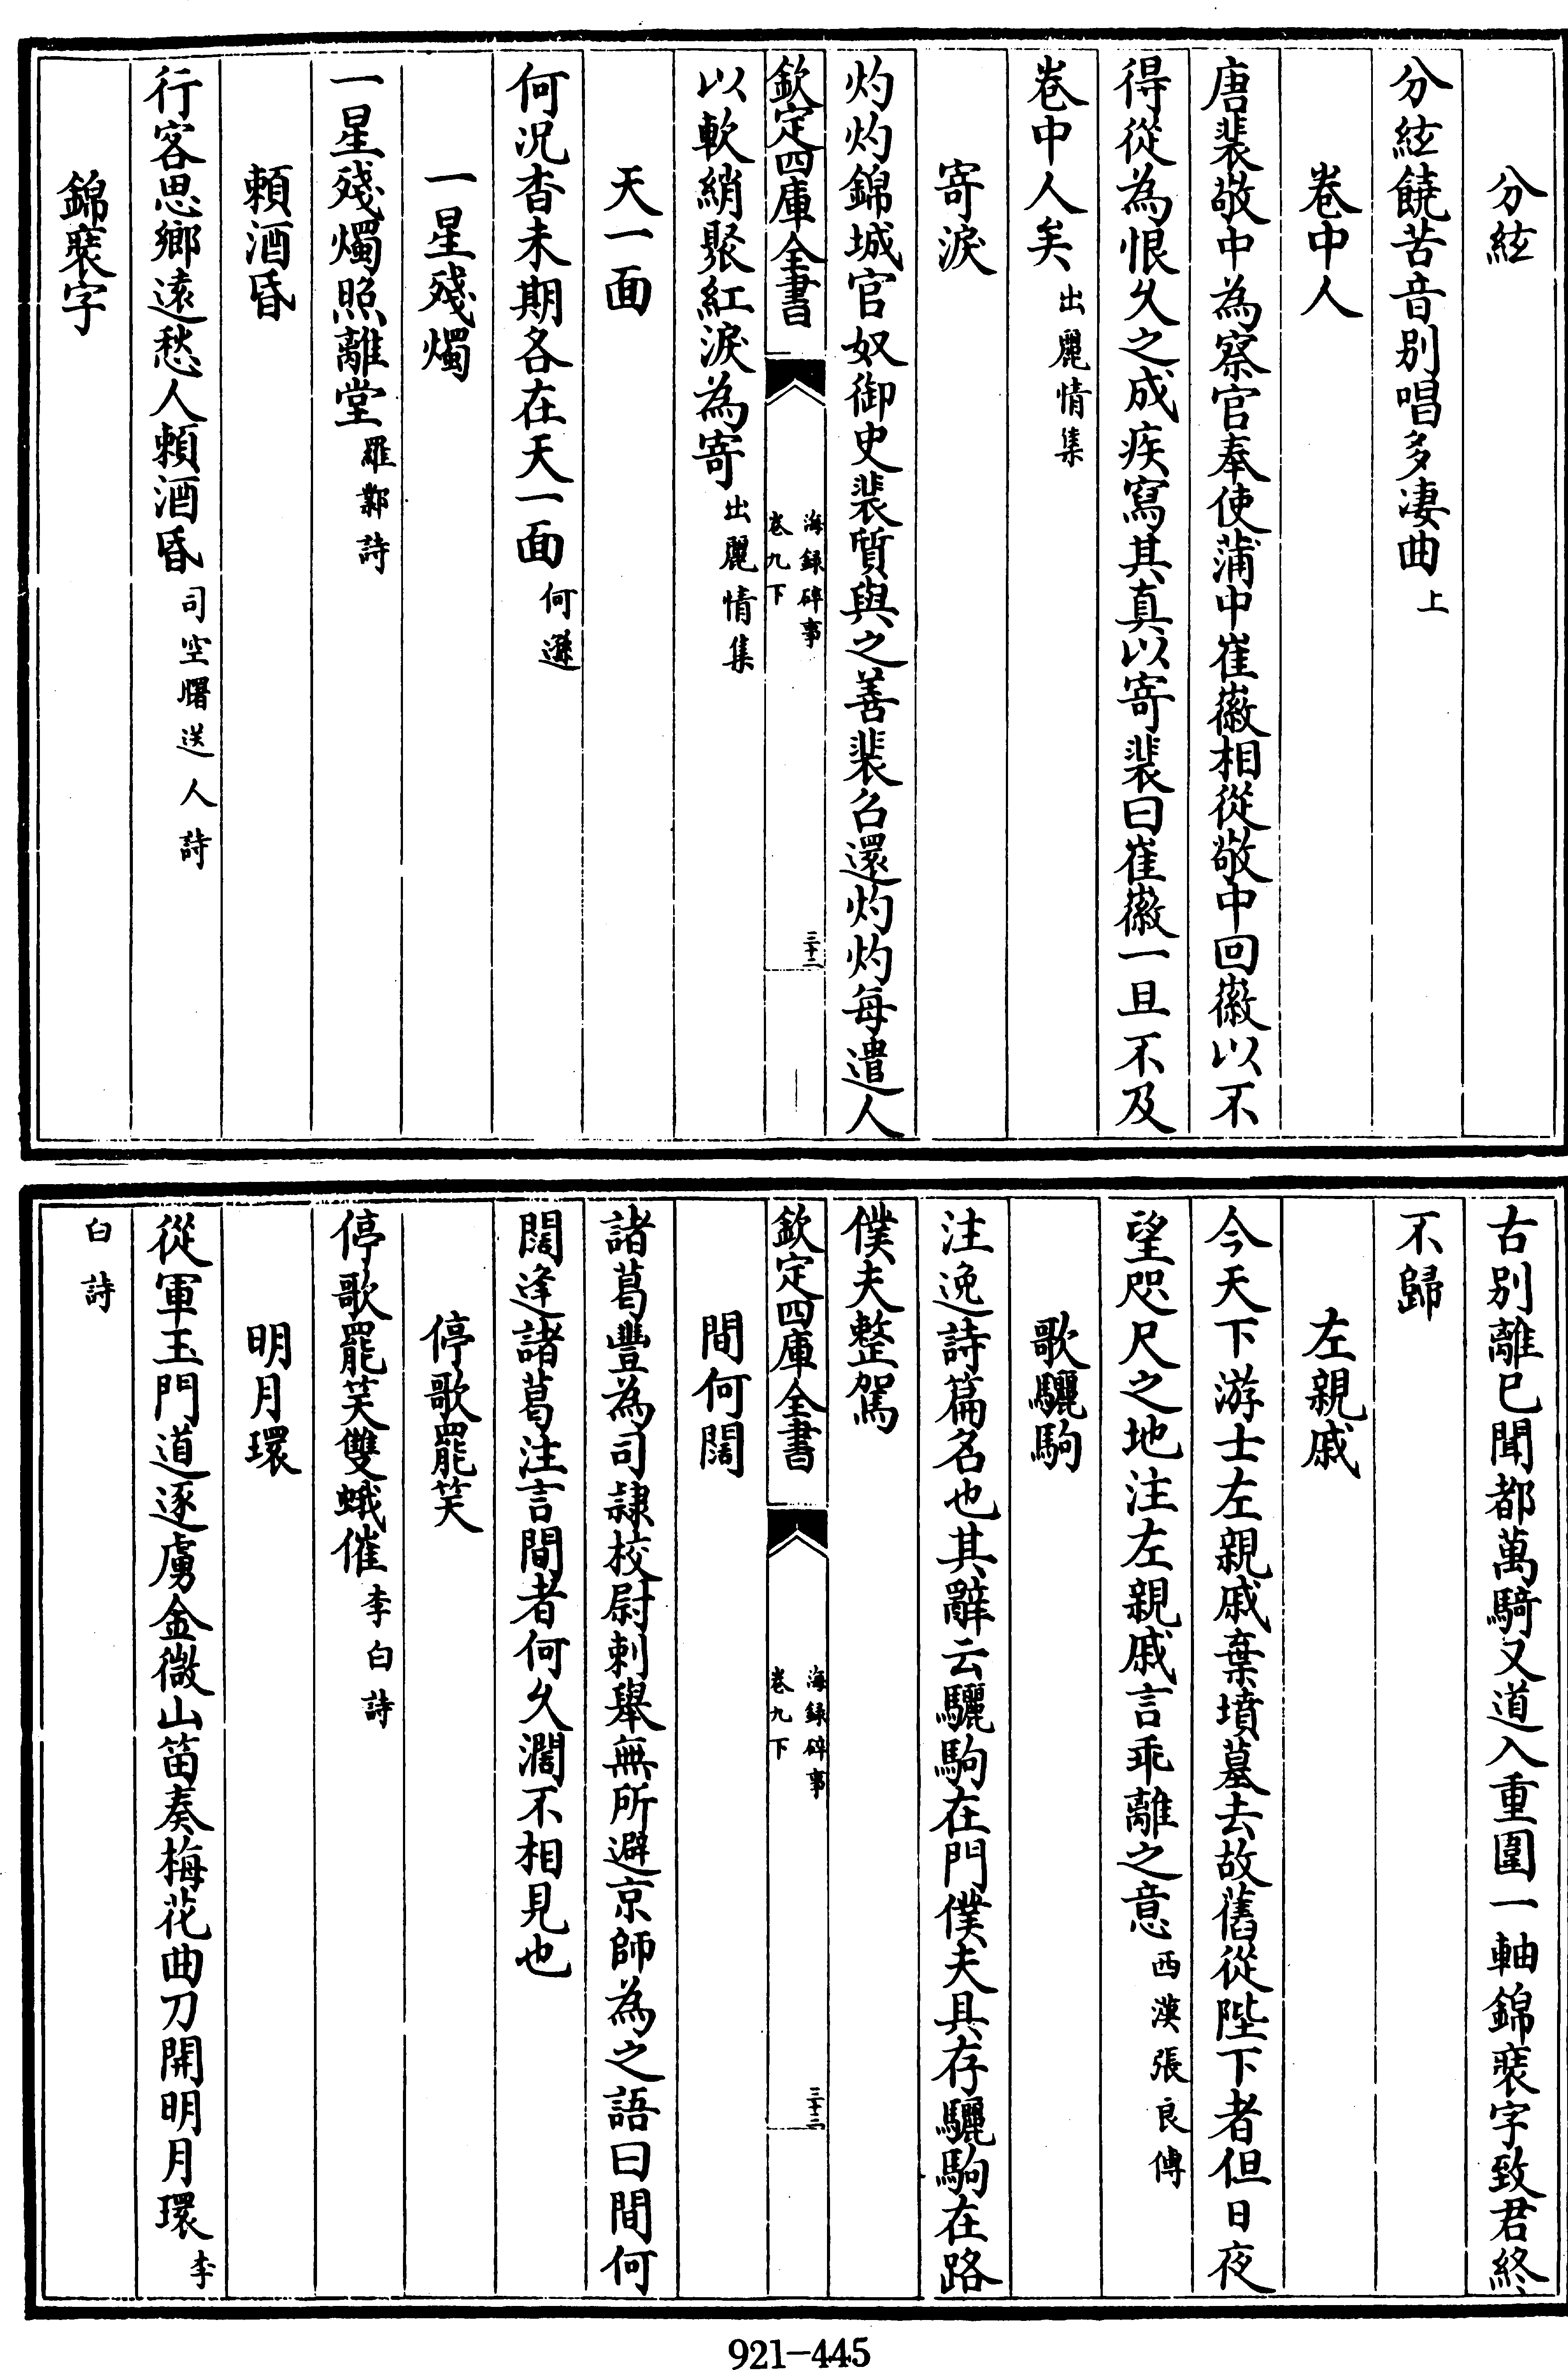 分絃
分絃饒苦音别唱多凄曲上
卷中人
唐裴敬中為察官奉使蒲中崔徽相從敬中回徽以不
得從為恨久之成疾寫其真以寄裴曰崔徽一旦不及
卷中人矣出麗情集
寄淚
灼灼錦城官奴御史裴質與之善裴召還灼灼每遣人
欽定四庫全書
海録碎事
卷九下
三十二
以軟綃聚紅淚為寄出麗情集
天一面
何况杳未期各在天一面何遜
一星殘燭
一星殘燭照離堂羅鄴詩
頼酒昏
行客思鄉遠愁人頼酒昏司空曙送人詩
錦裘字
古别離已聞都萬騎又道入重圍一軸錦裘字致君終
不歸
左親戚
今天下游士左親戚棄墳墓去故舊從陛下者但日夜
望咫尺之地注左親戚言乖離之意西漢張良傳
歌驪駒
注逸詩篇名也其辭云驪駒在門僕夫具存驪駒在路
僕夫整駕
欽定四庫全書
海録碎事
卷九下
三十三
間何闊
諸葛豐為司隷校尉刺舉無所避京師為之語曰間何
闊逢諸葛注言間者何久濶不相見也
停歌罷笑
停歌罷笑雙蛾催李白詩
明月環
從軍玉門道逐虜金微山笛奏梅花曲刀開明月環李
白詩
921-445